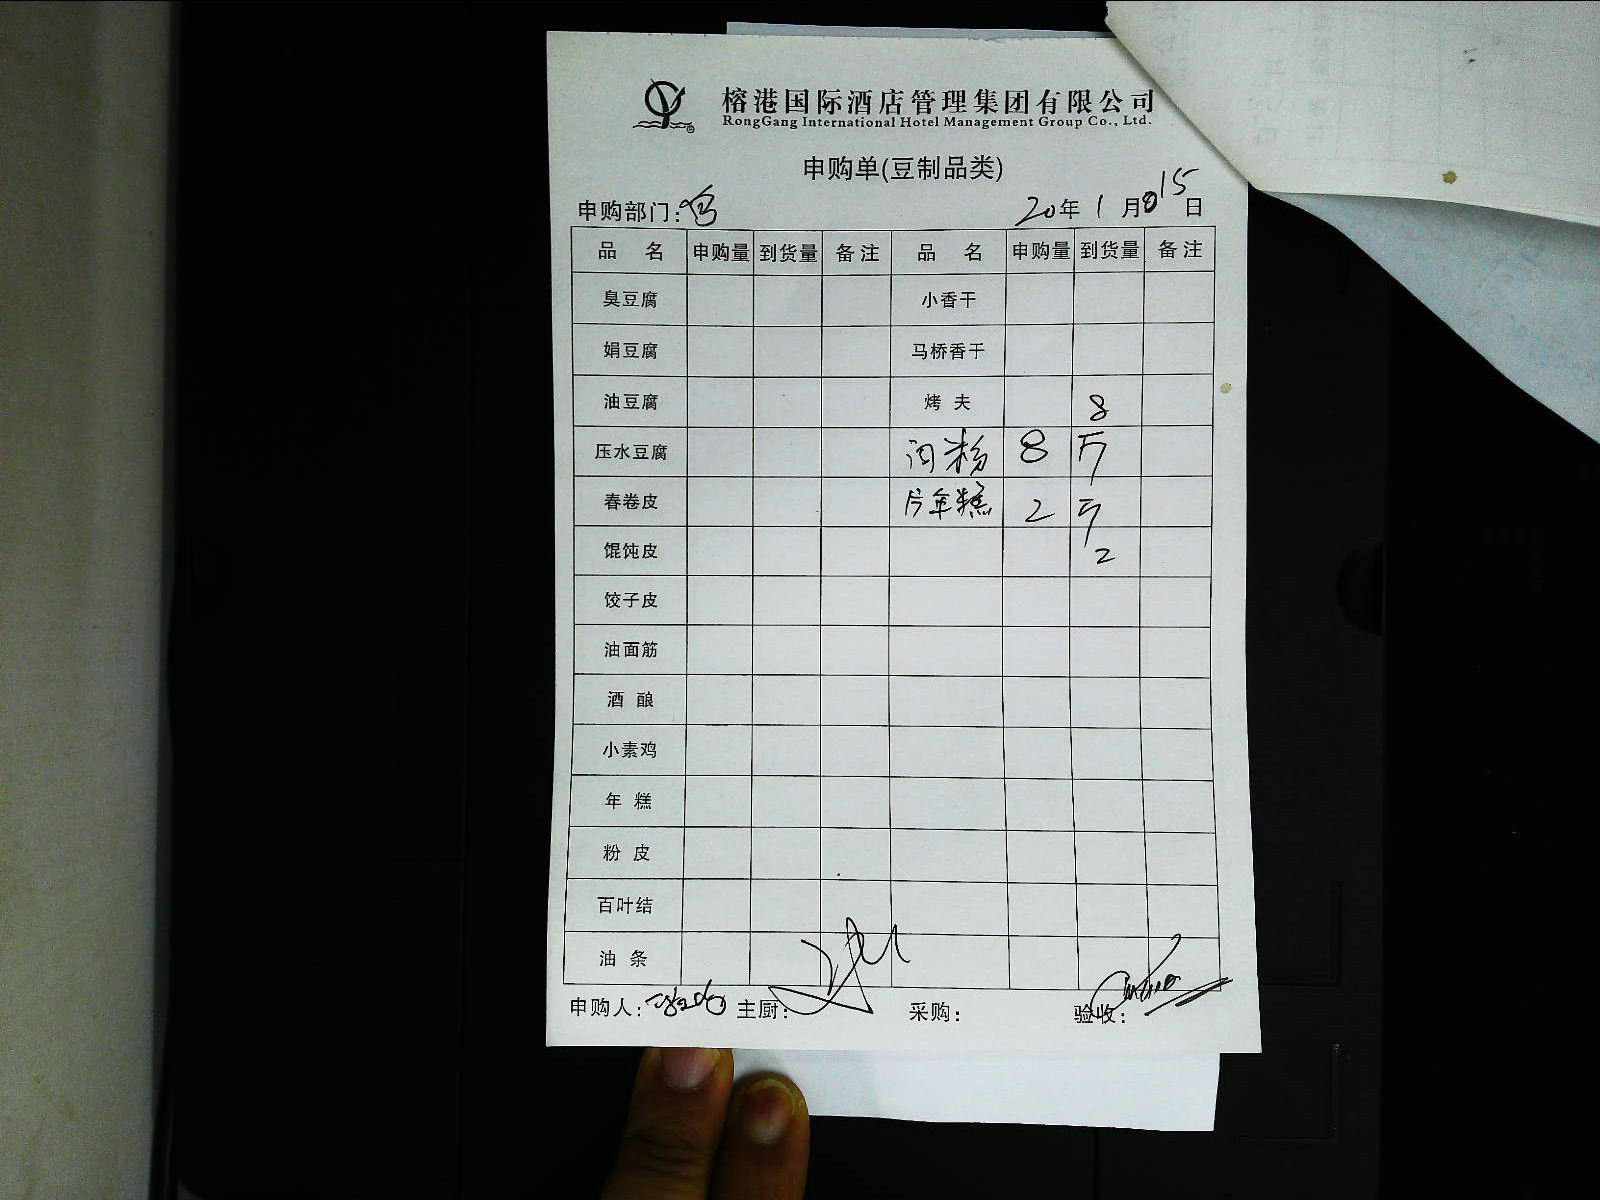 榕港国际酒店管理集团有限公司
RongGang International Hotel Management Group Co., Ltd.
申购单(豆制品类)
申购部门: 20年1月15日
品名 申购量 到货量 备注 品名 申购量 到货量 备注
臭豆腐 小香干
娟豆腐 马桥香干
油豆腐 烤夫 8
压水豆腐 河粉 8 斤
春卷皮 片年糕 2 斤
馄饨皮 2
饺子皮
油面筋
酒酿
小素鸡
年糕
粉皮
百叶结
油条
申购人: 主厨: 采购: 验收: